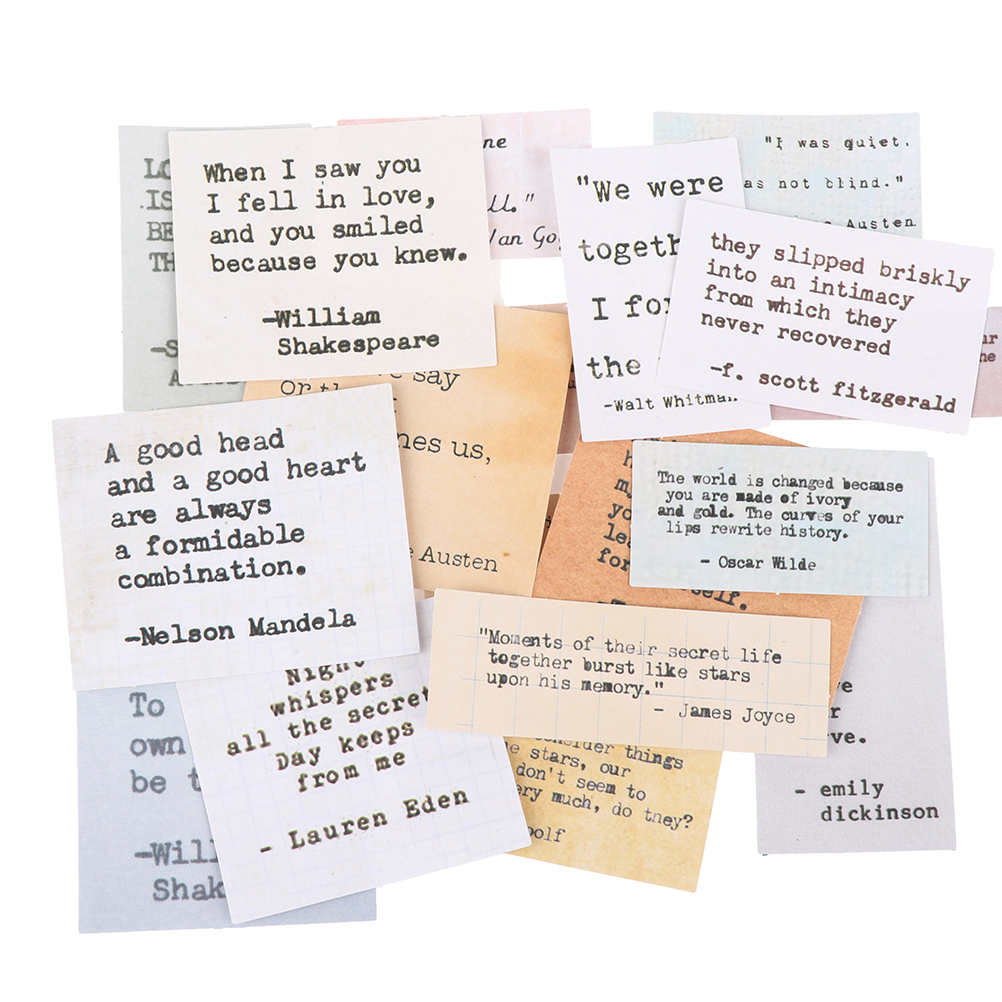 LO
.IS
BE
TH
—S
A
When I saw you
I fell in love,
and you smiled
because you knew.
—William
Shakespeare
ne
ll."
Van Go
"We were
togeth
I fo
the
-Walt Whitman
"I was quiet,
as not blind."
Austen
they slipped briskly
into an intimacy
from which they
never recovered
—f. scott fitzgerald
ur
he
say
or th
nes us,
e Austen
A good head
and a good heart
are always
a formidable
combination.
—Nelson Mandela
h
my
yo
le
for self.
The world is changed because
you are made of ivory
and gold. The curves of your
lips rewrite history.
- Oscar Wilde
"Moments of their secret life
together burst like stars
upon his memory."
- James Joyce
To
own
be t
—Will
Shak
Night
whispers
all the secret
Day keeps
from me
- Lauren Eden
onsider things
e stars, our
don't seem to
ery much, do they?
oolf
ve
r
ve.
- emily
dickinson